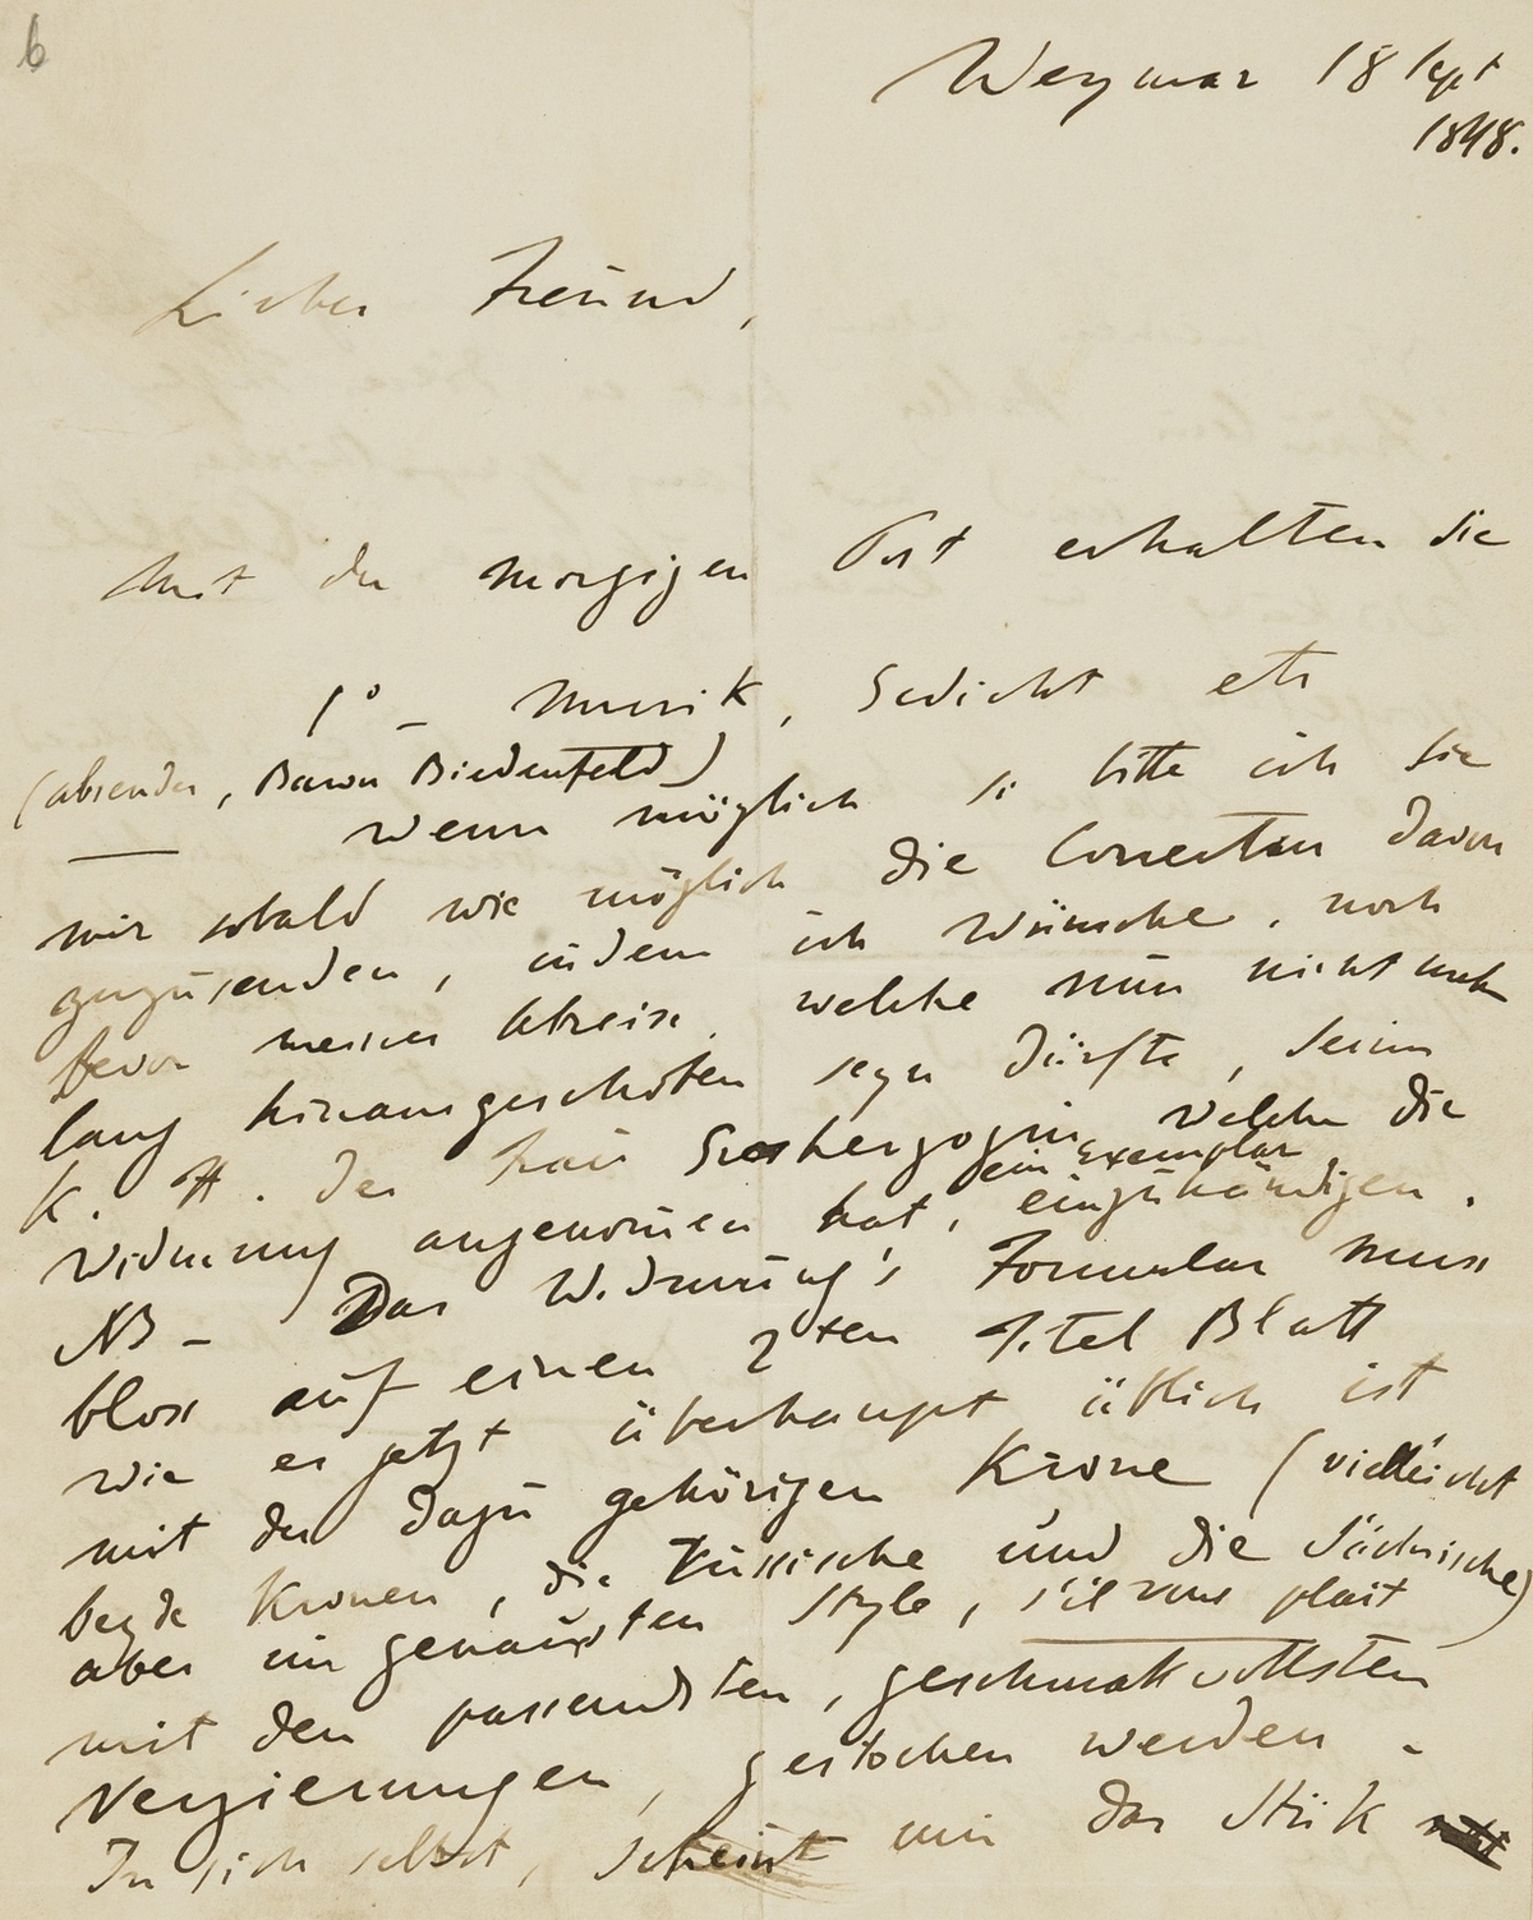 6
Weymar 18 Sept
1848.
Lieber Freund,
Mit der morgigen Post erhalten Sie
1° _ Musik, Gedicht etc
(absender, Baron Biedenfeld)
wenn möglich so bitte ich Sie
mir sobald wie möglich die Correcturen davon
zuzusenden, indem ich wünsche, noch
bevor meiner Abreise, welche nun nicht mehr
lang hinausgeschoben seyn dürfte, Seiner
K. H. der Frau Grosherzogin, welche die
ein Exemplar
Widmung angenomen hat, einzuhändigen.
NB - Das Widmung's Formular muss
bloss auf einen 2ten Titel Blatt
wie es jetzt überhaupt üblich ist
mit der dazu gehörigen Krone (vielleicht
beyde Kronen, die Russische und die Sächsische)
aber im genausten Style, s'il vous plait
mit den passendsten, geschmakvollsten
Verzierungen, gestochen werden -
In sich selbst, scheint mir das Stük